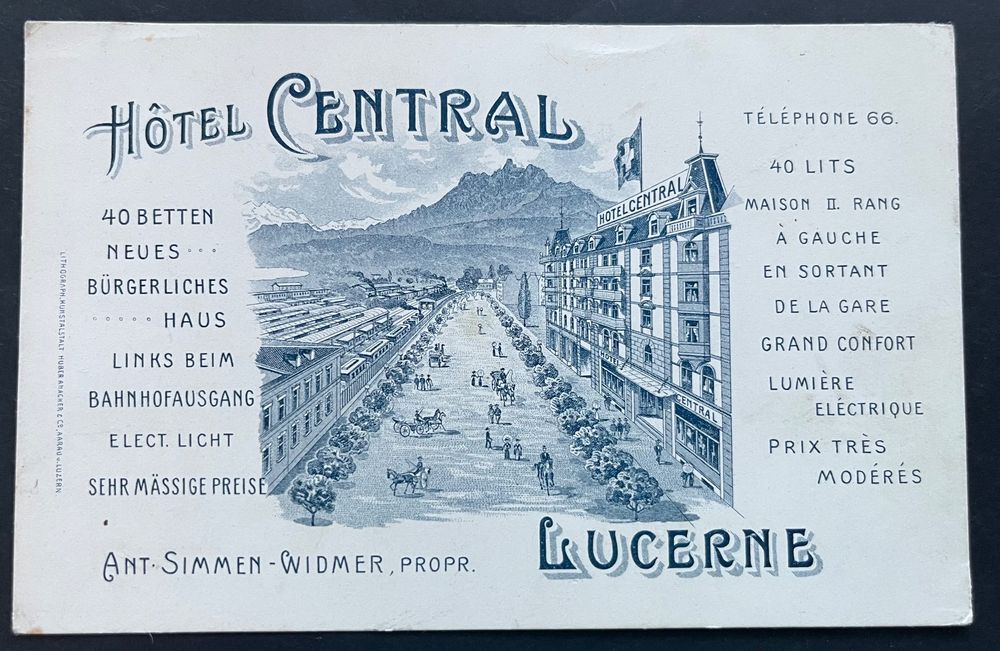 HÔTEL CENTRAL
40 BETTEN
NEUES
BÜRGERLICHES
HAUS
LINKS BEIM
BAHNHOFAUSGANG
ELECT. LICHT
SEHR MÄSSIGE PREISE
ANT. SIMMEN-WIDMER, PROPR.
LITHOGRAPH. KUNSTALSTALT HUBER ANACHER & Cº, AARAU u. LUZERN.
HOTEL CENTRAL
HOTEL
CENTRAL
TÉLÉPHONE 66.
40 LITS
MAISON II. RANG
À GAUCHE
EN SORTANT
DE LA GARE
GRAND CONFORT
LUMIÈRE
ELÉCTRIQUE
PRIX TRÈS
MODÉRÉS
LUCERNE